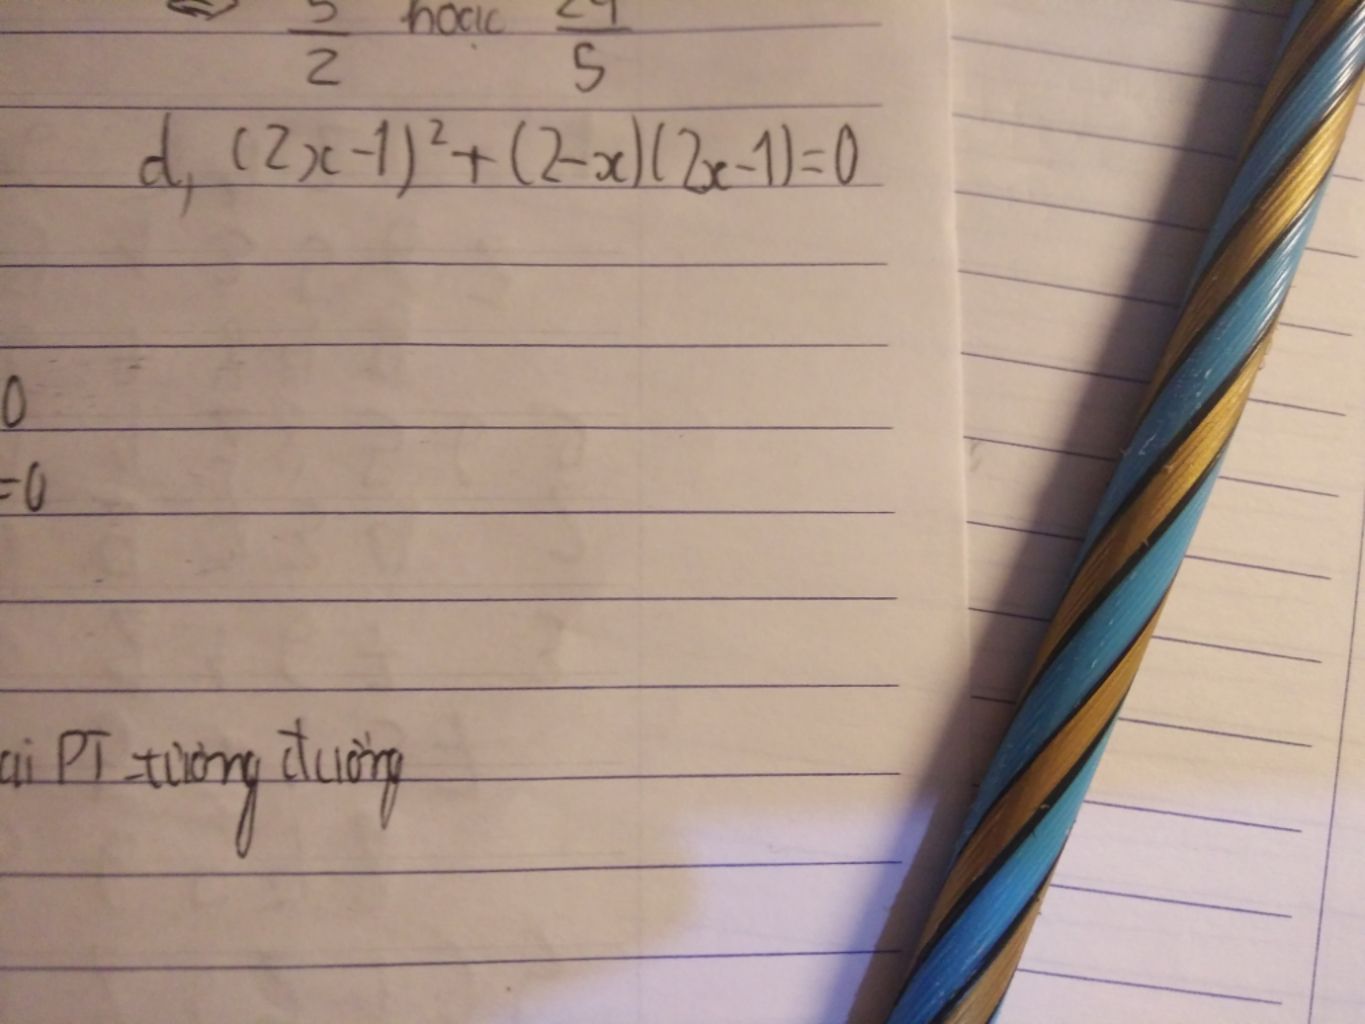 ⇔ 5/2 hoặc /5
d, (2x-1)²+(2-x)(2x-1)=0
0
=0
ai PT tương đương